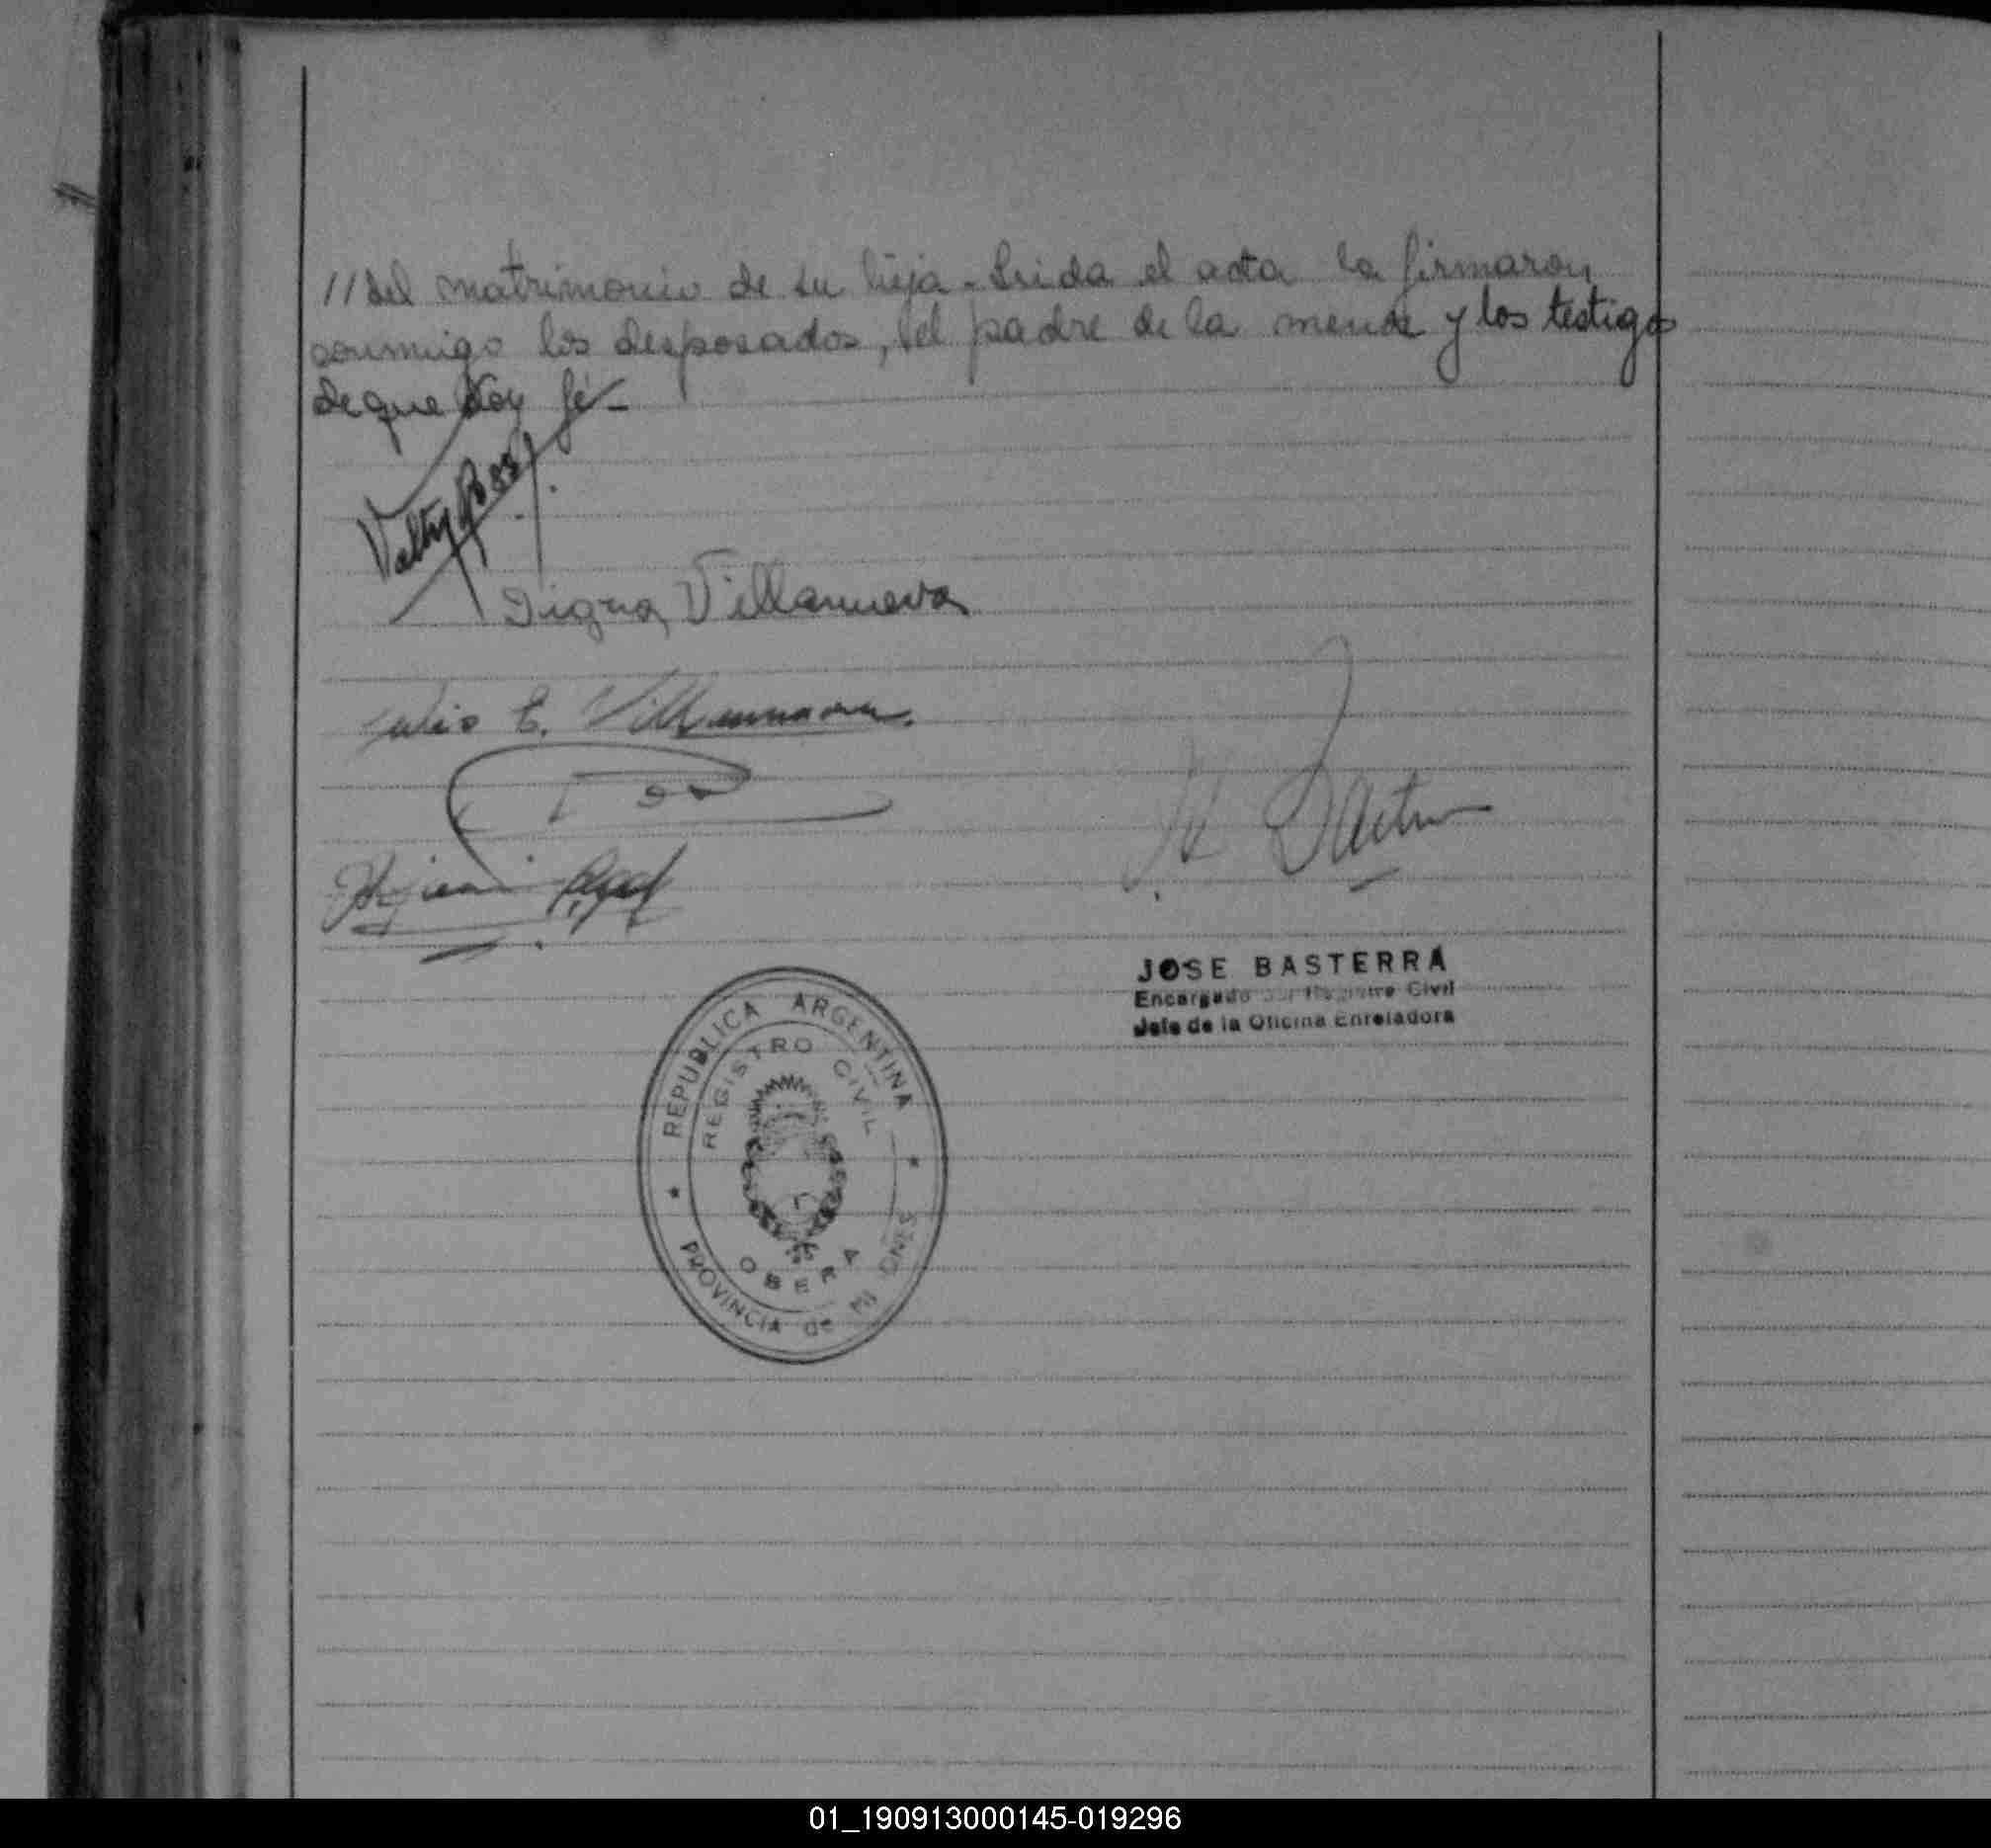 //del matrimonio de su hija. Leida el acta la firmaron
conmigo los desposados, el padre de la menor y los testigos
de que doy fé-
Digna Villanueva
Julio E. Villanueva
JOSE BASTERRA
Encargado del Registro Civil
Jefe de la Oficina Enroladora
REPUBLICA ARGENTINA
REGISTRO CIVIL
OBERA
PROVINCIA de MISIONES
01_190913000145-019296